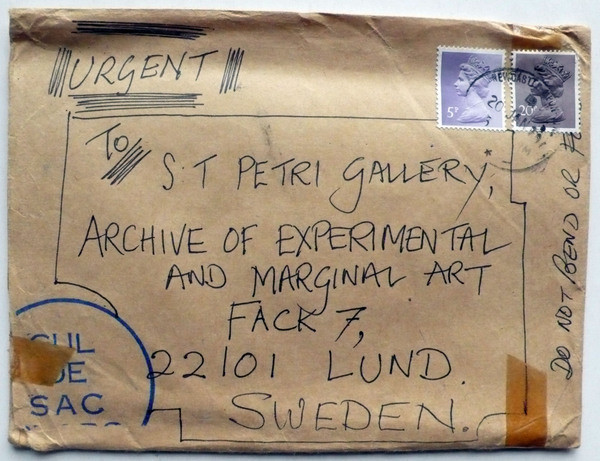 URGENT
To
S.T PETRI GALLERY,
ARCHIVE OF EXPERIMENTAL
AND MARGINAL ART
FACK 7,
22101 LUND.
SWEDEN.
DO NOT BEND OR
5P
20P
NEWCASTLE
20
CUL
DE
SAC